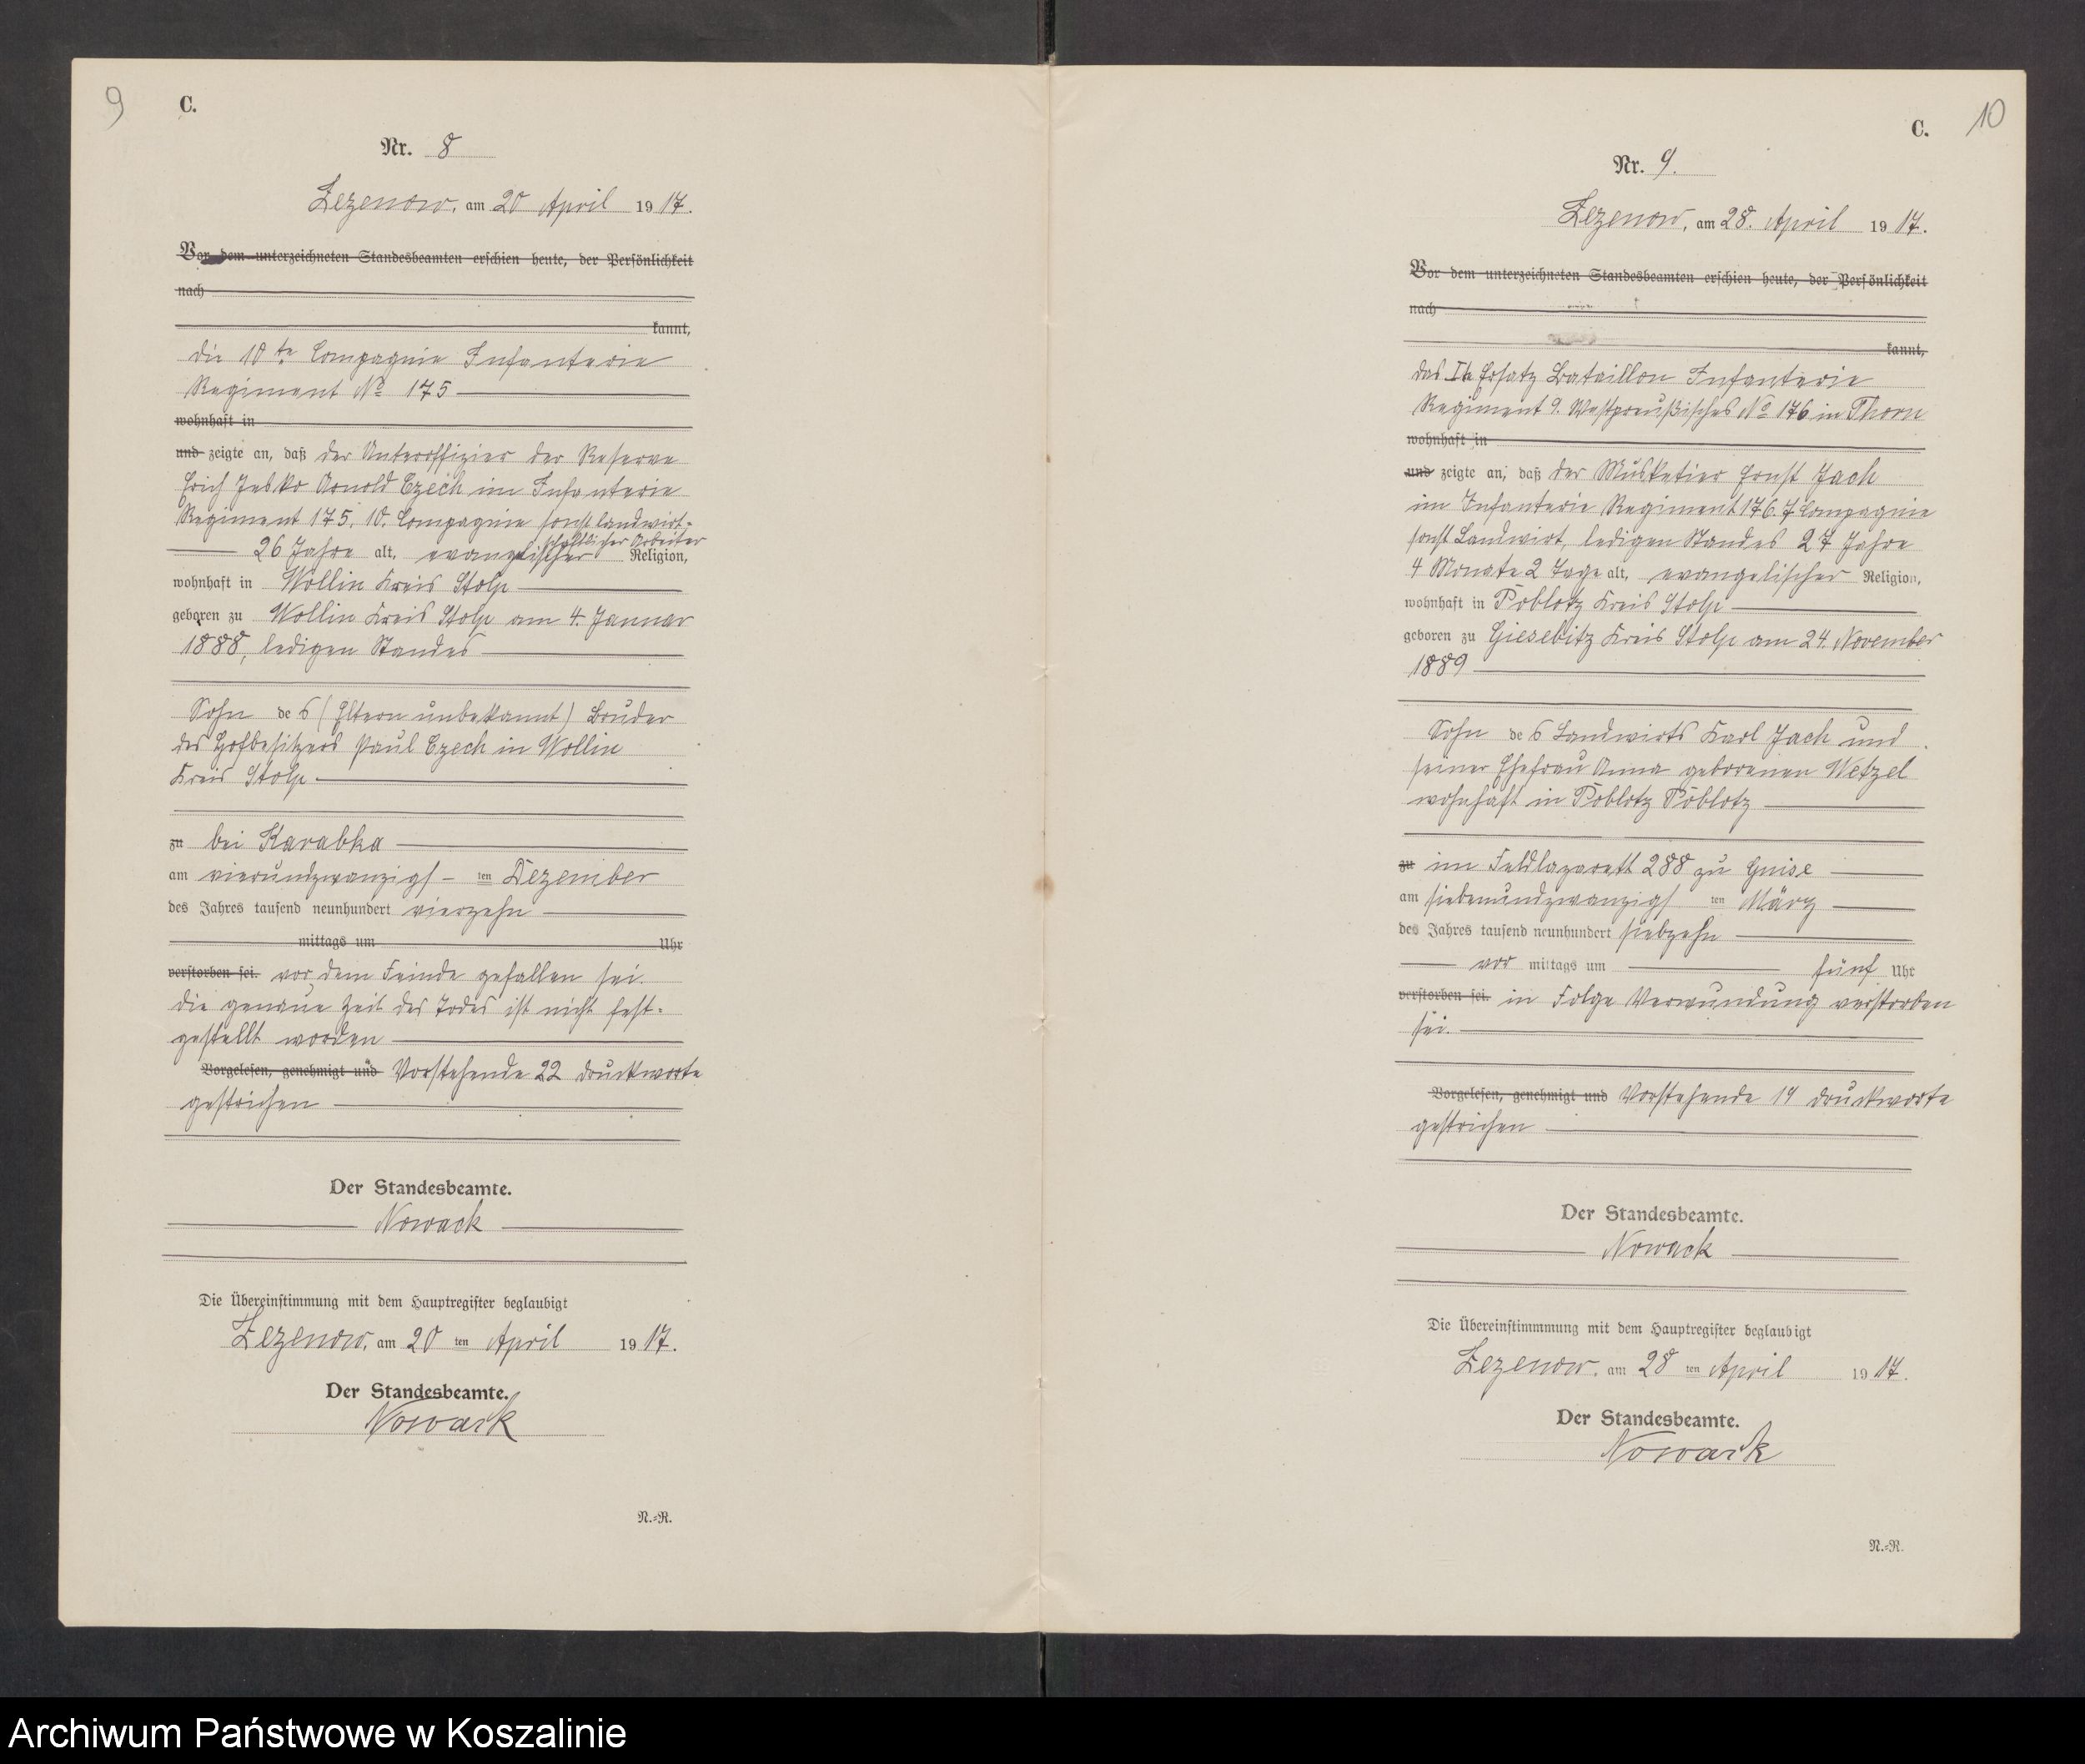 9
C.
Nr. 8
Zezenow, am 20 April 1917.
Vor dem unterzeichneten Standesbeamten erschien heute, der Persönlichkeit
nach
kannt,
die 10te Compagnie Infanterie
Regiment No 175
wohnhaft in
und zeigte an, daß der Unteroffizier der Reserve
Erich Arnold Czech im Infanterie
Regiment 175. 10. Compagnie sonst landwirt-
schaftlicher Arbeiter
26 Jahre alt, evangelischer Religion,
wohnhaft in Wollin Kreis Stolp
geboren zu Wollin Kreis Stolp am 4. Januar
1888, ledigen Standes
Sohn des (Eltern unbekannt) Bruder
des Hofbesitzers Paul Czech in Wollin
Kreis Stolp
zu bei Karabka
am vierundzwanzigs-ten Dezember
des Jahres tausend neunhundert vierzehn
mittags um Uhr
verstorben sei. vor dem Feinde gefallen sei.
die genaue Zeit des Todes ist nicht fest-
gestellt worden
Vorgelesen, genehmigt und Vorstehende 22 Druckworte
gestrichen
Der Standesbeamte.
Nowack
Die Übereinstimmung mit dem Hauptregister beglaubigt
Zezenow, am 20 ten April 1917.
Der Standesbeamte.
Nowack
N.=R.
10
C.
Nr. 9.
Zezenow, am 28. April 1917.
Vor dem unterzeichneten Standesbeamten erschien heute, der Persönlichkeit
nach
kannt,
das Ite Ersatz Bataillon Infanterie
Regiment 9. Westpreußisches No 176 in Thorn
wohnhaft in
und zeigte an, daß der Musketier Ernst Jach
im Infanterie Regiment 176. 7 Compagnie
sonst Landwirt, ledigen Standes 27 Jahre
4 Monate 2 Tage alt, evangelischer Religion,
wohnhaft in Poblotz Kreis Stolp
geboren zu Giesebitz Kreis Stolp am 24. November
1889
Sohn des Landwirts Karl Jach und
seiner Ehefrau Anna geborenen Wetzel
wohnhaft in Poblotz Poblotz
zu im Feldlazarett 288 zu Guise
am siebenundzwanzigs ten März
des Jahres tausend neunhundert siebzehn
vor mittags um fünf Uhr
verstorben sei. in Folge Verwundung verstorben
sei.
Vorgelesen, genehmigt und Vorstehende 19 Druckworte
gestrichen
Der Standesbeamte.
Nowack
Die Übereinstimmmung mit dem Hauptregister beglaubigt
Zezenow, am 28 ten April 1917.
Der Standesbeamte.
Nowack
N.=R.
Archiwum Państwowe w Koszalinie